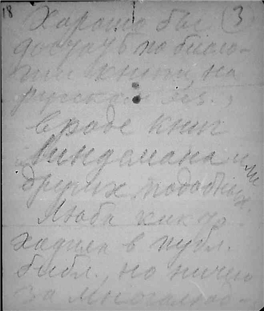 18 Хорошо бы 3
достать по биоло-
гии книги на
русском яз.,
вроде книг
Линдемана и
других подобных
Люба как-то
ходила в публ.
библ., но ничего
за